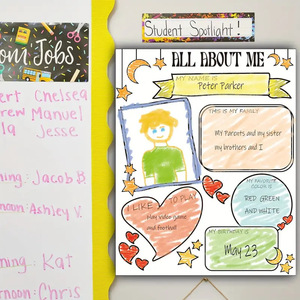 Room Jobs
Chelsea
Manuel
Jesse
Jacob B
Ashley V.
Kat
Chris
Student Spotlight:
ALL ABOUT ME
MY NAME IS
Peter Parker
THIS IS MY FAMILY
My Parents and my sister
my brothers and I
I LIKE TO PLAY
Play video game
and football
MY FAVORITE
COLOR IS
RED GREEN
AND WHITE
MY BIRTHDAY IS
May 23